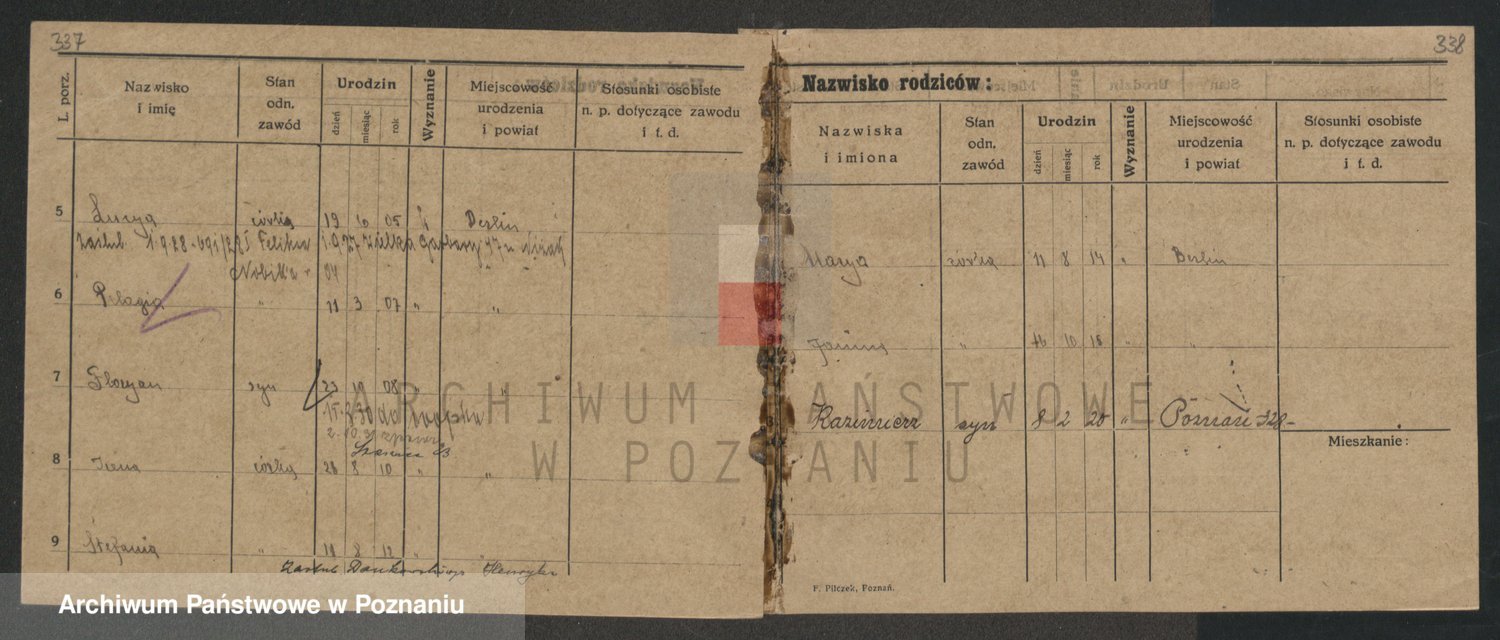 337
L. porz.
Nazwisko
i imię
Stan
odn.
zawód
Urodzin
dzień
miesiąc
rok
Wyznanie
Miejscowość
urodzenia
i powiat
Stosunki osobiste
n. p. dotyczące zawodu
i t. d.
5 Lucya córka 19 6 05 Berlin
zaślub. 1928 Feliksa 1927 Wielka Garbary 47
04
6 Pelagia " 11 3 07 " "
7 Floryan syn 23 10 08 "
15. 2 30 do wojska
8 Irena córka 26 8 10 " "
9 Stefania " 19 8 12 "
Zaślub Henryka
338
Nazwisko rodziców:
Nazwiska
i imiona
Stan
odn.
zawód
Urodzin
dzień
miesiąc
rok
Wyznanie
Miejscowość
urodzenia
i powiat
Stosunki osobiste
n. p. dotyczące zawodu
i t. d.
Marya córka 11 8 14 " Berlin
Janina " 16 10 16 " "
Kazimierz syn 8 2 20 " Poznań 328-
Mieszkanie:
F. Pilczek, Poznań.
ARCHIWUM PAŃSTWOWE
W POZNANIU
Archiwum Państwowe w Poznaniu